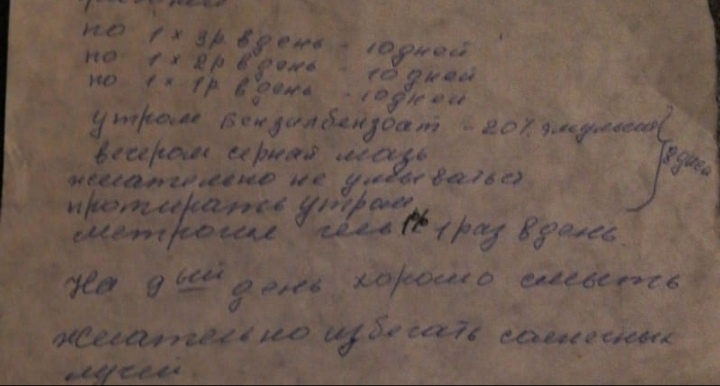 по 1 х 3р. в день - 10 дней
по 1 х 2р в день - 10 дней
по 1 х 1р. в день - 10 дней
утром Бензилбензоат - 20% эмульсия
вечером серная мазь
желательно не умываться
протирать утром
8 дней
метрогил гель 1% 1 раз в день
На 9ый день хорошо смыть
Желательно избегать солнечных
лучей